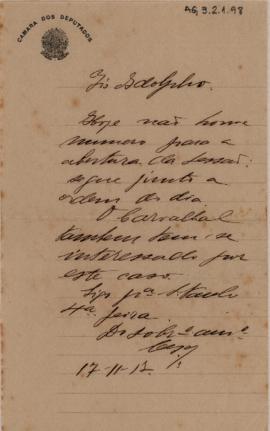 AG,3.2.1.98
CAMARA DOS DEPUTADOS
Tio Adolpho.
Hoje não houve
numero para a
abertura da sessão:
segue junto a
ordem do dia.
O Carvalhal
tambem tem-se
interessado por
este caso.
Sigo pª S. Paulo
4ª feira.
Do sobrº amº
17-11-